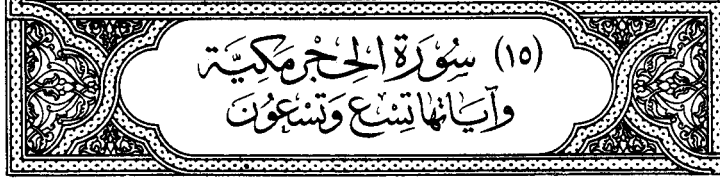 (١٥) سُورَة الحِجْر مَكِيَّة
وَآيَاتهَا تِسْع وَتِسْعُونَ